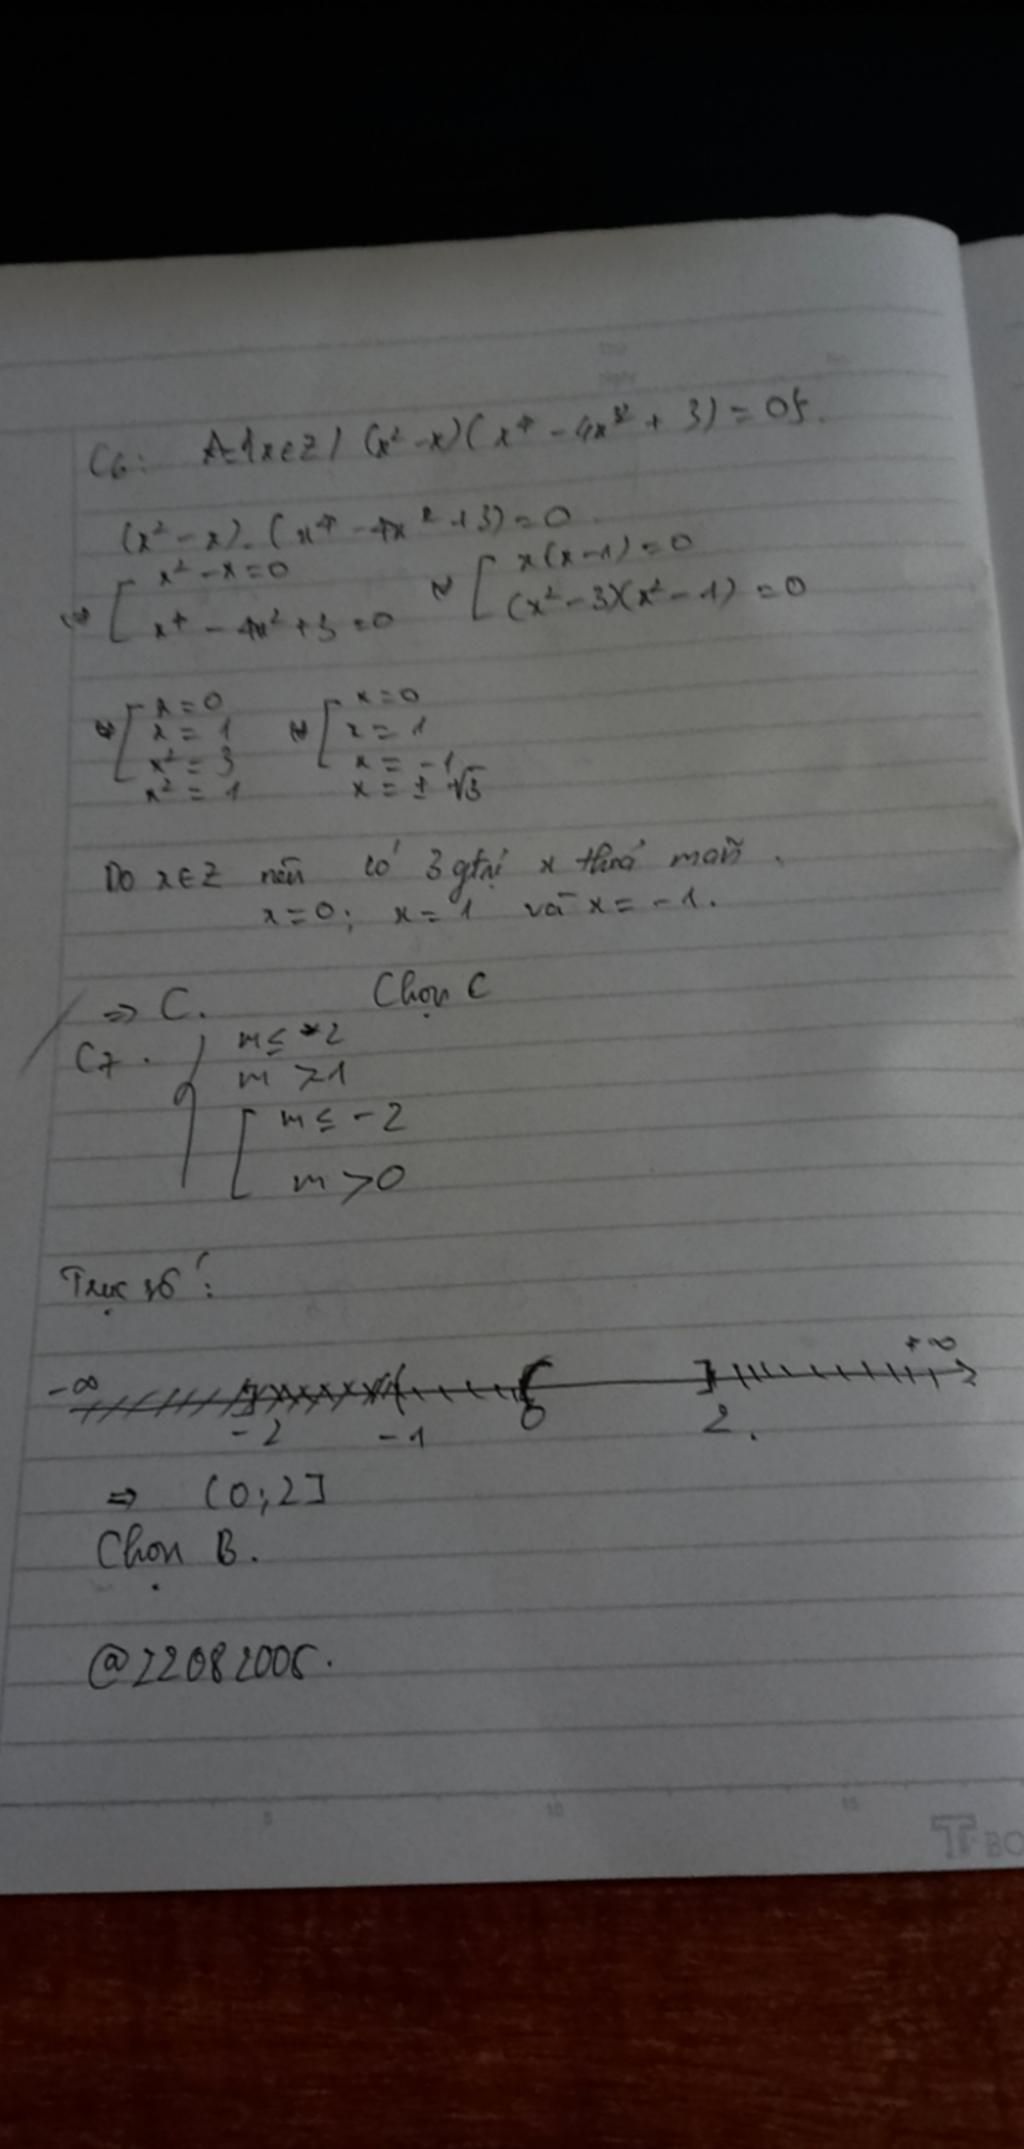 C6: A={x∈Z / (x² - x)(x⁴ - 4x² + 3) = 0}.
(x² - x).(x⁴ - 4x² + 3) = 0
⇔ [ x² - x = 0 ⇔ [ x(x - 1) = 0
x⁴ - 4x² + 3 = 0 (x² - 3)(x² - 1) = 0
⇔ [ x = 0 ⇔ [ x = 0
x = 1 x = 1
x² = 3 x = -1
x² = 1 x = ± √3
Do x∈Z nên có 3 gtrị x thoả mãn.
x = 0; x = 1 và x = -1.
=> C. Chọn C
C7. { m ≤ 2
m > 1
[ m ≤ -2
m > 0
Trục số:
-∞ +∞
-2 -1 0 2.
=> (0;2]
Chọn B.
@22082006.
5 10 15